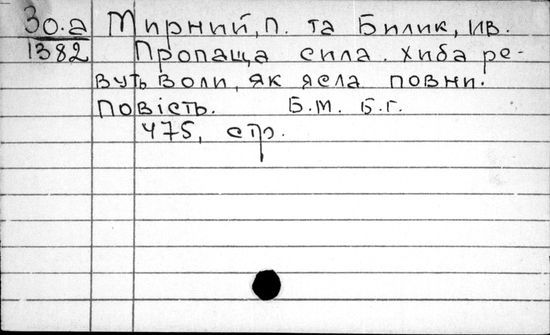 Зо.а Мирний, П. та Билик, ив.
1382 Пропаща сила. Хиба ре-
вуть воли, як ясла повни.
Повість. Б.м. Б.г.
475, стр.